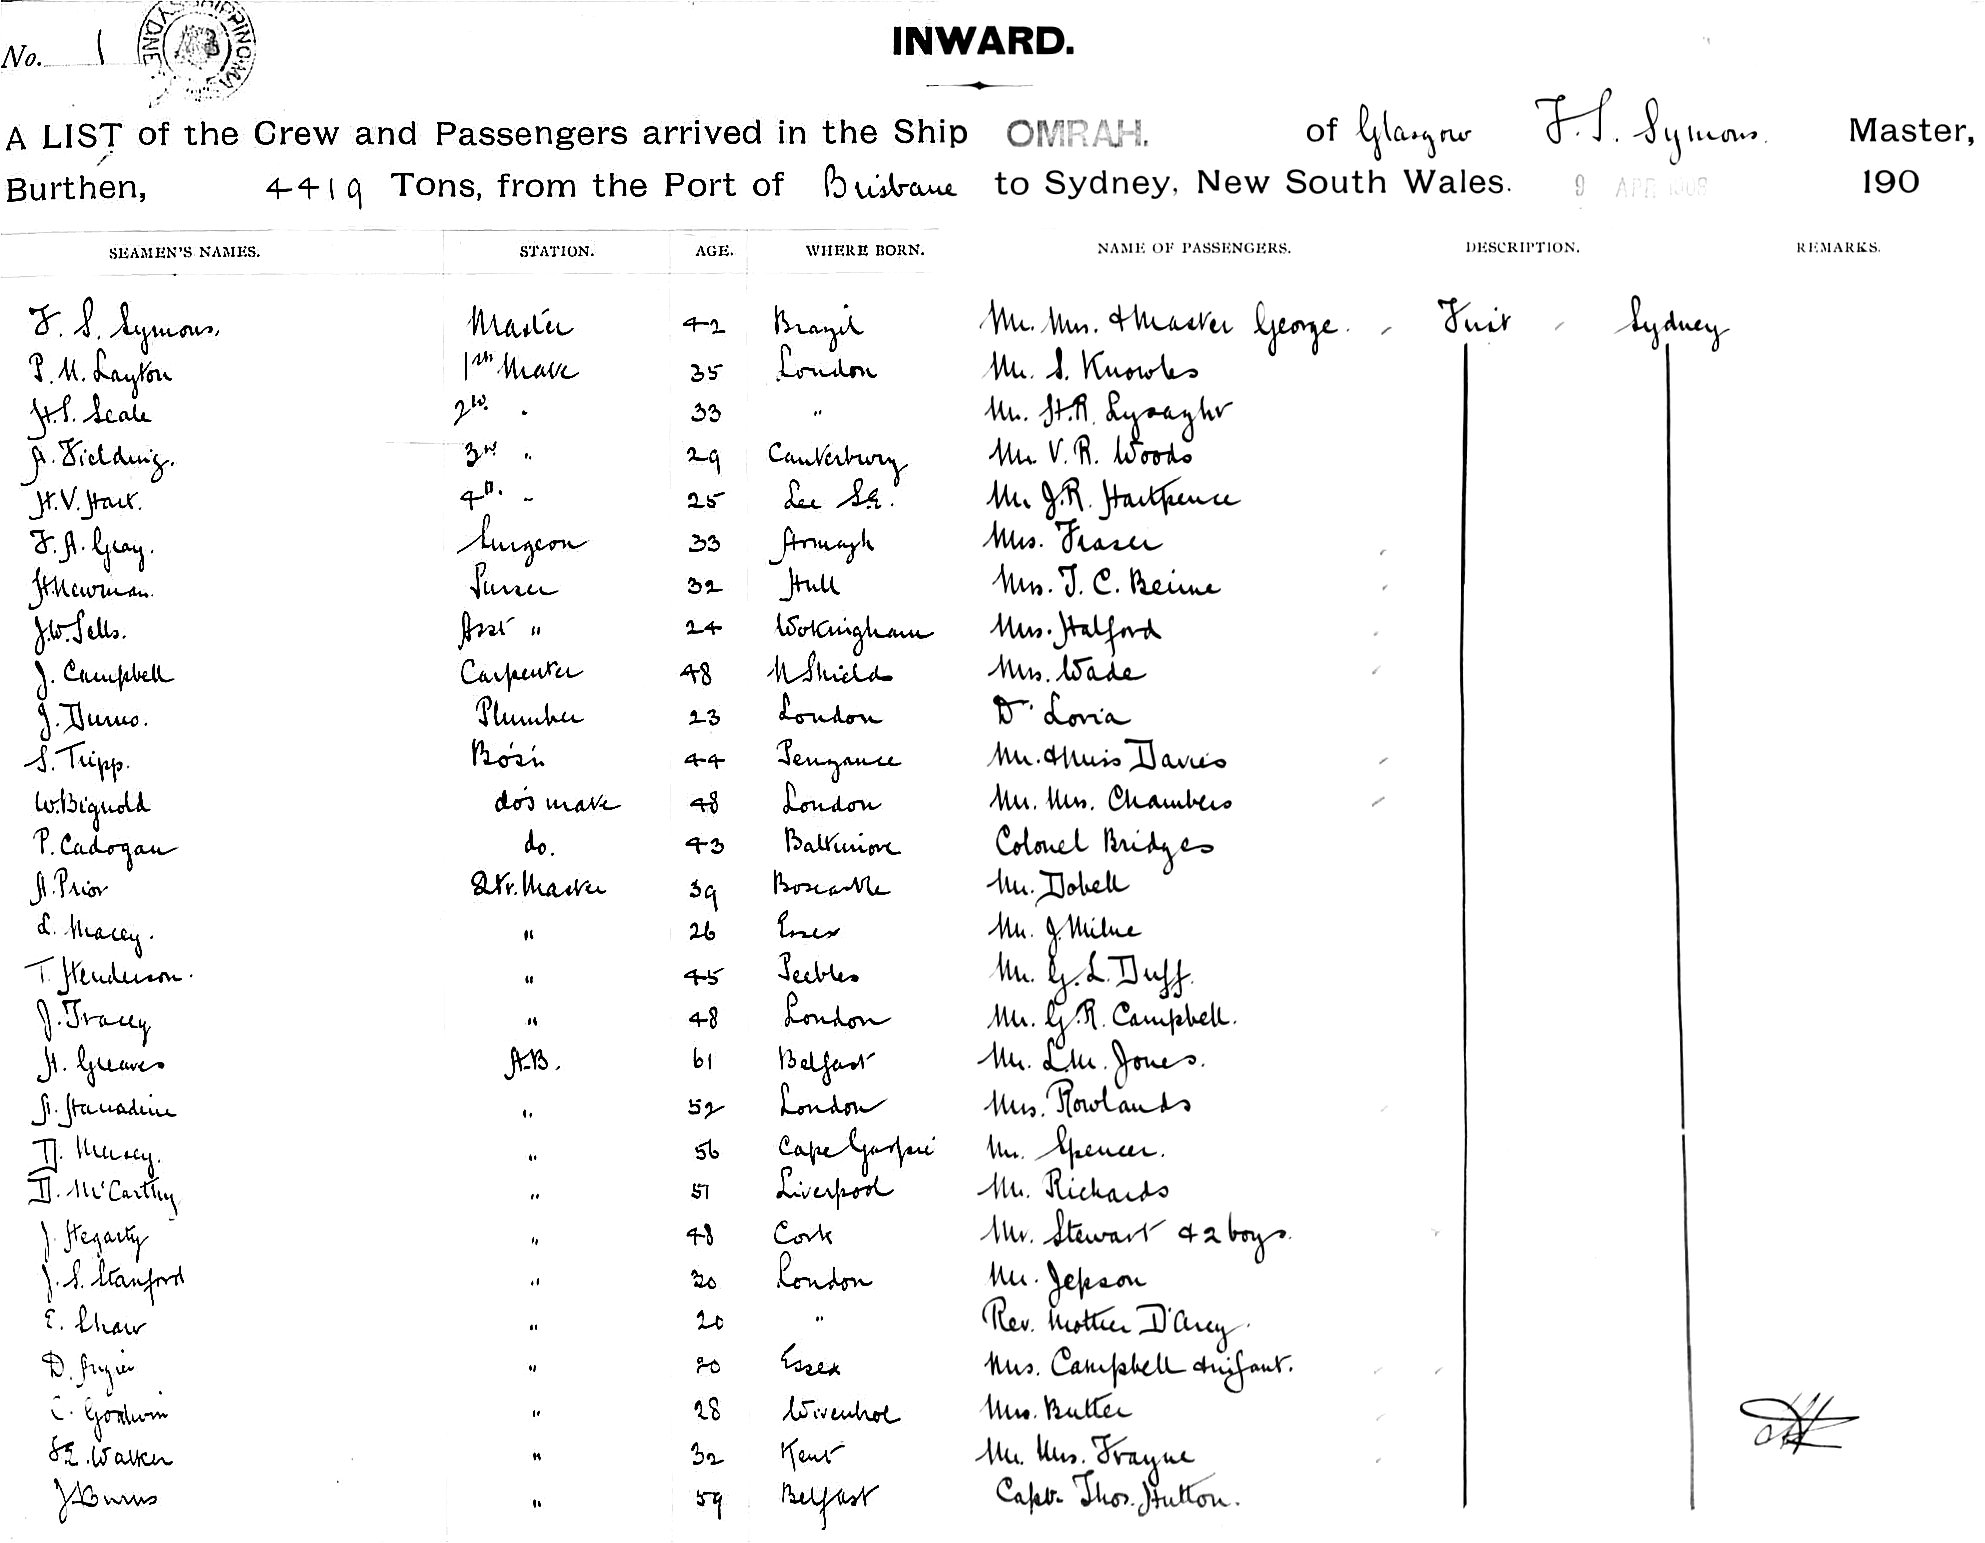 No. 1
SHIPPING MA SYDNE
INWARD.
A LIST of the Crew and Passengers arrived in the Ship OMRAH. of Glasgow F. S. Symons. Master,
Burthen, 4419 Tons, from the Port of Brisbane to Sydney, New South Wales. 9 APR 1908 190
SEAMEN'S NAMES. STATION. AGE. WHERE BORN. NAME OF PASSENGERS. DESCRIPTION. REMARKS.
F. S. Symons. Master 42 Brazil Mr. Mrs. & Master George. First Sydney
P. M. Layton 1st Mate 35 London Mr. S. Knowles
H.S. Scale 2nd " 33 " Mr. H.R. Lysaght
A. Fielding. 3rd " 29 Canterbury Mr V. R. Woods
H.V. Hart. 4th " 25 Lee S.E. Mr J.R. Hartpence
F. A. Gray. Surgeon 33 Armagh Mrs. Fraser
H. Newman. Purser 32 Hull Mrs. T. C. Beirne
J.W. Sells. Asst " 24 Wokingham Mrs. Halford
J. Campbell Carpenter 48 N Shields Mrs. Wade
J. Plumber 23 London Dr Loria
S. Tripp. Bo's'n 44 Penzance Mr. & Miss Davies
W. Bignold do's mate 48 London Mr. Mrs. Chambers
P. Cadogan do. 43 Baltimore Colonel Bridges
A. Prior Qtr. Master 39 Boscastle Mr. Dobell
L. Macey. " 26 Essex Mr. J. Milne
T. Henderson. " 45 Peebles Mr. G. L. Duff.
J. Tracey " 48 London Mr. G.R. Campbell.
H. Greaves A.B. 61 Belfast Mr. L.M. Jones.
A. Hanadine " 52 London Mrs. Rowlands
D. " 56 Cape Gaspé Mr. Spencer.
D. McCarthy " 51 Liverpool Mr. Richards
J. Hegarty " 48 Cork Mr. Stewart & 2 boys.
J. S. Stanford " 30 London Mr. Jepson
E. Shaw " 20 " Rev. Mother D'Arcy.
D. " 20 Essex Mrs. Campbell & infant.
C. Godwin " 28 Wivenhoe Mrs. Butler
F.E. Walker " 32 Kent Mr. Mrs. Frayne
J. Burns " 59 Belfast Capt. Thos. Hutton.